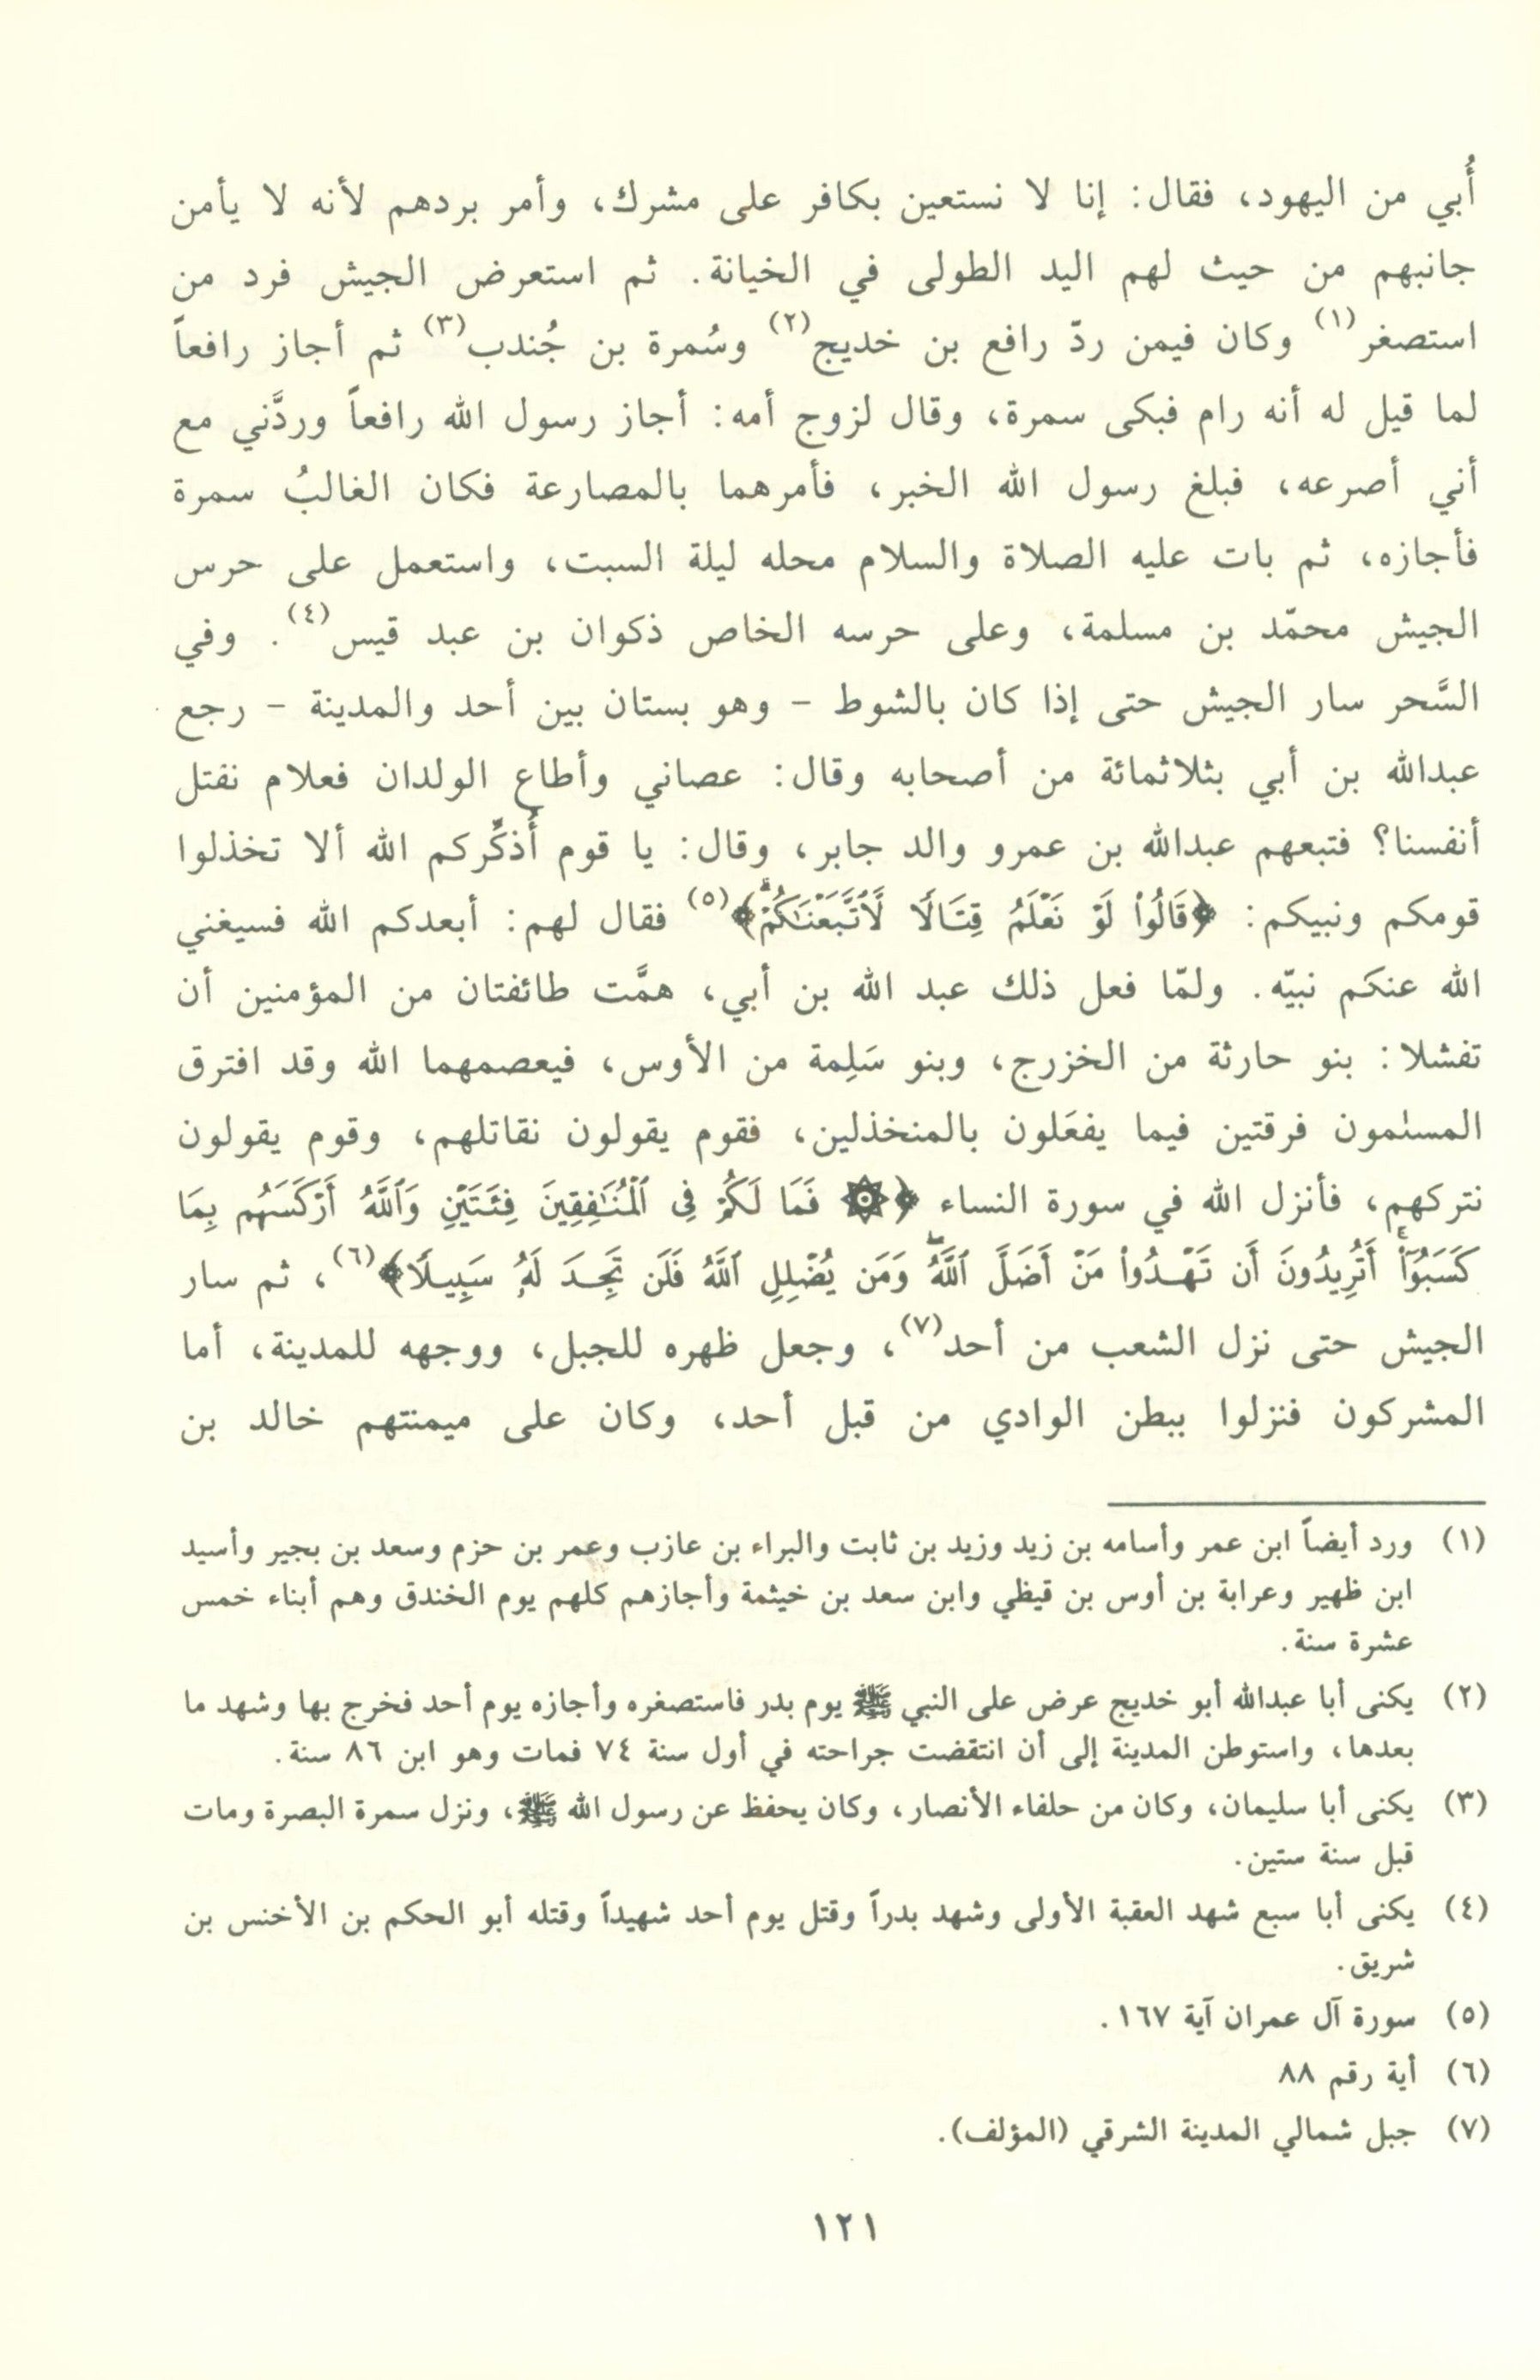 أُبي من اليهود، فقال: إنا لا نستعين بكافر على مشرك، وأمر بردهم لأنه لا يأمن
جانبهم من حيث لهم اليد الطولى في الخيانة. ثم استعرض الجيش فرد من
استصغر(١) وكان فيمن ردّ رافع بن خديج(٢) وسُمرة بن جُندب(٣) ثم أجاز رافعاً
لما قيل له أنه رام فبكى سمرة، وقال لزوج أمه: أجاز رسول الله رافعاً وردَّني مع
أني أصرعه، فبلغ رسول الله الخبر، فأمرهما بالمصارعة فكان الغالبُ سمرة
فأجازه، ثم بات عليه الصلاة والسلام محله ليلة السبت، واستعمل على حرس
الجيش محمّد بن مسلمة، وعلى حرسه الخاص ذكوان بن عبد قيس(٤). وفي
السَّحر سار الجيش حتى إذا كان بالشوط - وهو بستان بين أحد والمدينة - رجع
عبدالله بن أبي بثلاثمائة من أصحابه وقال: عصاني وأطاع الولدان فعلام نقتل
أنفسنا؟ فتبعهم عبدالله بن عمرو والد جابر، وقال: يا قوم أُذكِّركم الله ألا تخذلوا
قومكم ونبيكم: ﴿قَالُواْ لَوۡ نَعۡلَمُ قِتَالٗا لَّٱتَّبَعۡنَٰكُمۡۗ﴾(٥) فقال لهم: أبعدكم الله فسيغني
الله عنكم نبيّه. ولمّا فعل ذلك عبد الله بن أبي، همَّت طائفتان من المؤمنين أن
تفشلا: بنو حارثة من الخزرج، وبنو سَلِمة من الأوس، فيعصمهما الله وقد افترق
المسلمون فرقتين فيما يفعَلون بالمنخذلين، فقوم يقولون نقاتلهم، وقوم يقولون
نتركهم، فأنزل الله في سورة النساء ﴿۞ فَمَا لَكُمۡ فِي ٱلۡمُنَٰفِقِينَ فِئَتَيۡنِ وَٱللَّهُ أَرۡكَسَهُم بِمَا
كَسَبُوٓاْۚ أَتُرِيدُونَ أَن تَهۡدُواْ مَنۡ أَضَلَّ ٱللَّهُۖ وَمَن يُضۡلِلِ ٱللَّهُ فَلَن تَجِدَ لَهُۥ سَبِيلٗا﴾(٦)، ثم سار
الجيش حتى نزل الشعب من أحد(٧)، وجعل ظهره للجبل، ووجهه للمدينة، أما
المشركون فنزلوا ببطن الوادي من قبل أحد، وكان على ميمنتهم خالد بن
(١) ورد أيضاً ابن عمر وأسامه بن زيد وزيد بن ثابت والبراء بن عازب وعمر بن حزم وسعد بن بجير وأسيد
ابن ظهير وعرابة بن أوس بن قيظي وابن سعد بن خيثمة وأجازهم كلهم يوم الخندق وهم أبناء خمس
عشرة سنة.
(٢) يكنى أبا عبدالله أبو خديج عرض على النبي ﷺ يوم بدر فاستصغره وأجازه يوم أحد فخرج بها وشهد ما
بعدها، واستوطن المدينة إلى أن انتقضت جراحته في أول سنة ٧٤ فمات وهو ابن ٨٦ سنة.
(٣) يكنى أبا سليمان، وكان من حلفاء الأنصار، وكان يحفظ عن رسول الله ﷺ، ونزل سمرة البصرة ومات
قبل سنة ستين.
(٤) يكنى أبا سبع شهد العقبة الأولى وشهد بدراً وقتل يوم أحد شهيداً وقتله أبو الحكم بن الأخنس بن
شريق.
(٥) سورة آل عمران آية ١٦٧.
(٦) أية رقم ٨٨
(٧) جبل شمالي المدينة الشرقي (المؤلف).
١٢١